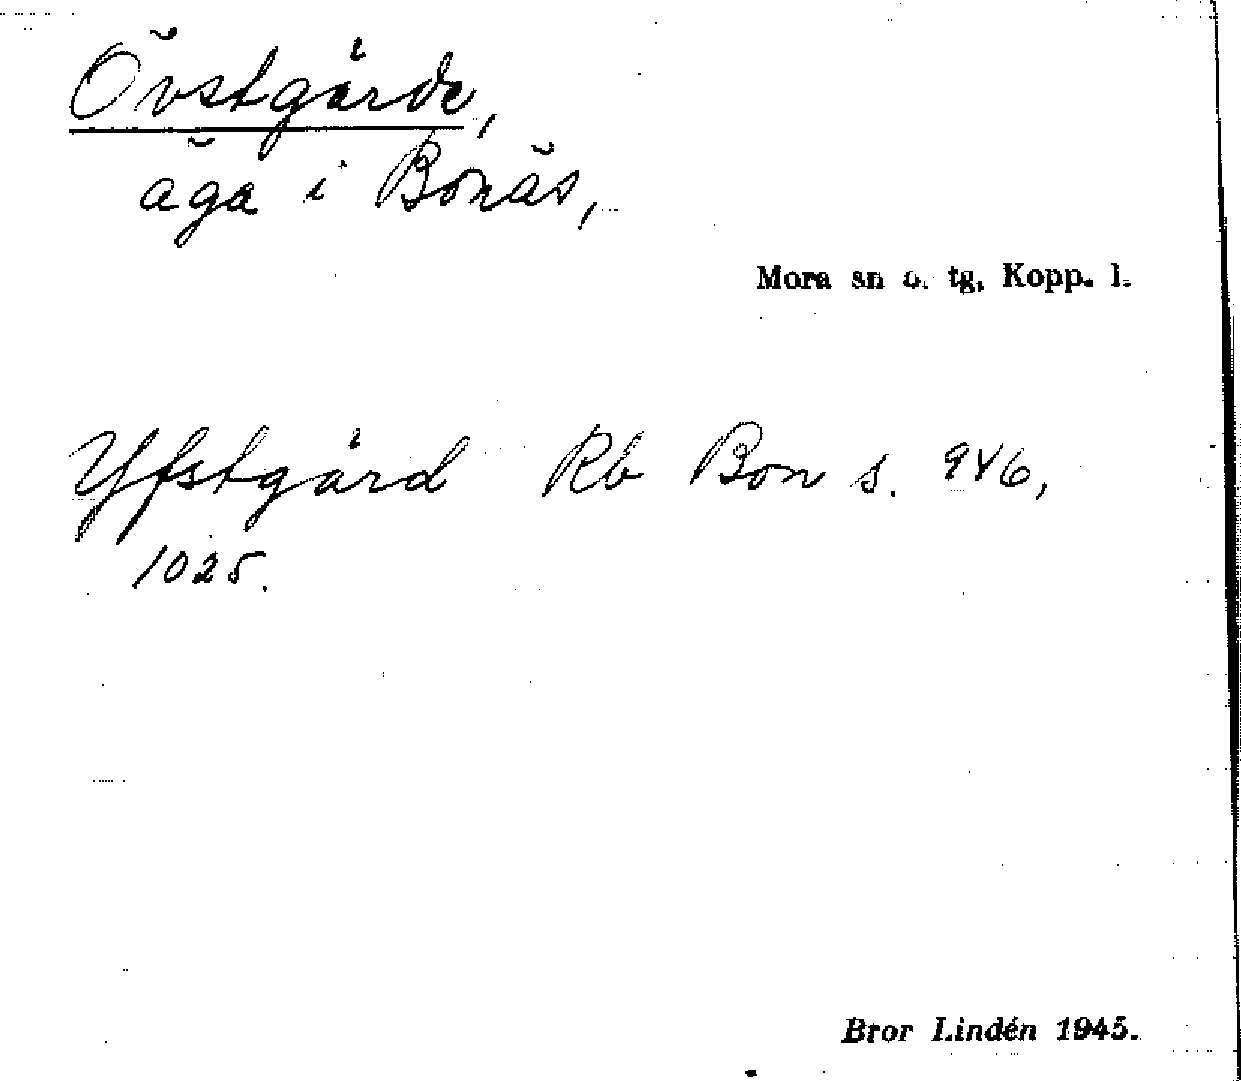 Övstgårde,
äga i Bonäs,
Mora sn o. tg, Kopp. l.
Yfstgård Rb Bon s. 946,
1025.
Bror Lindén 1945.